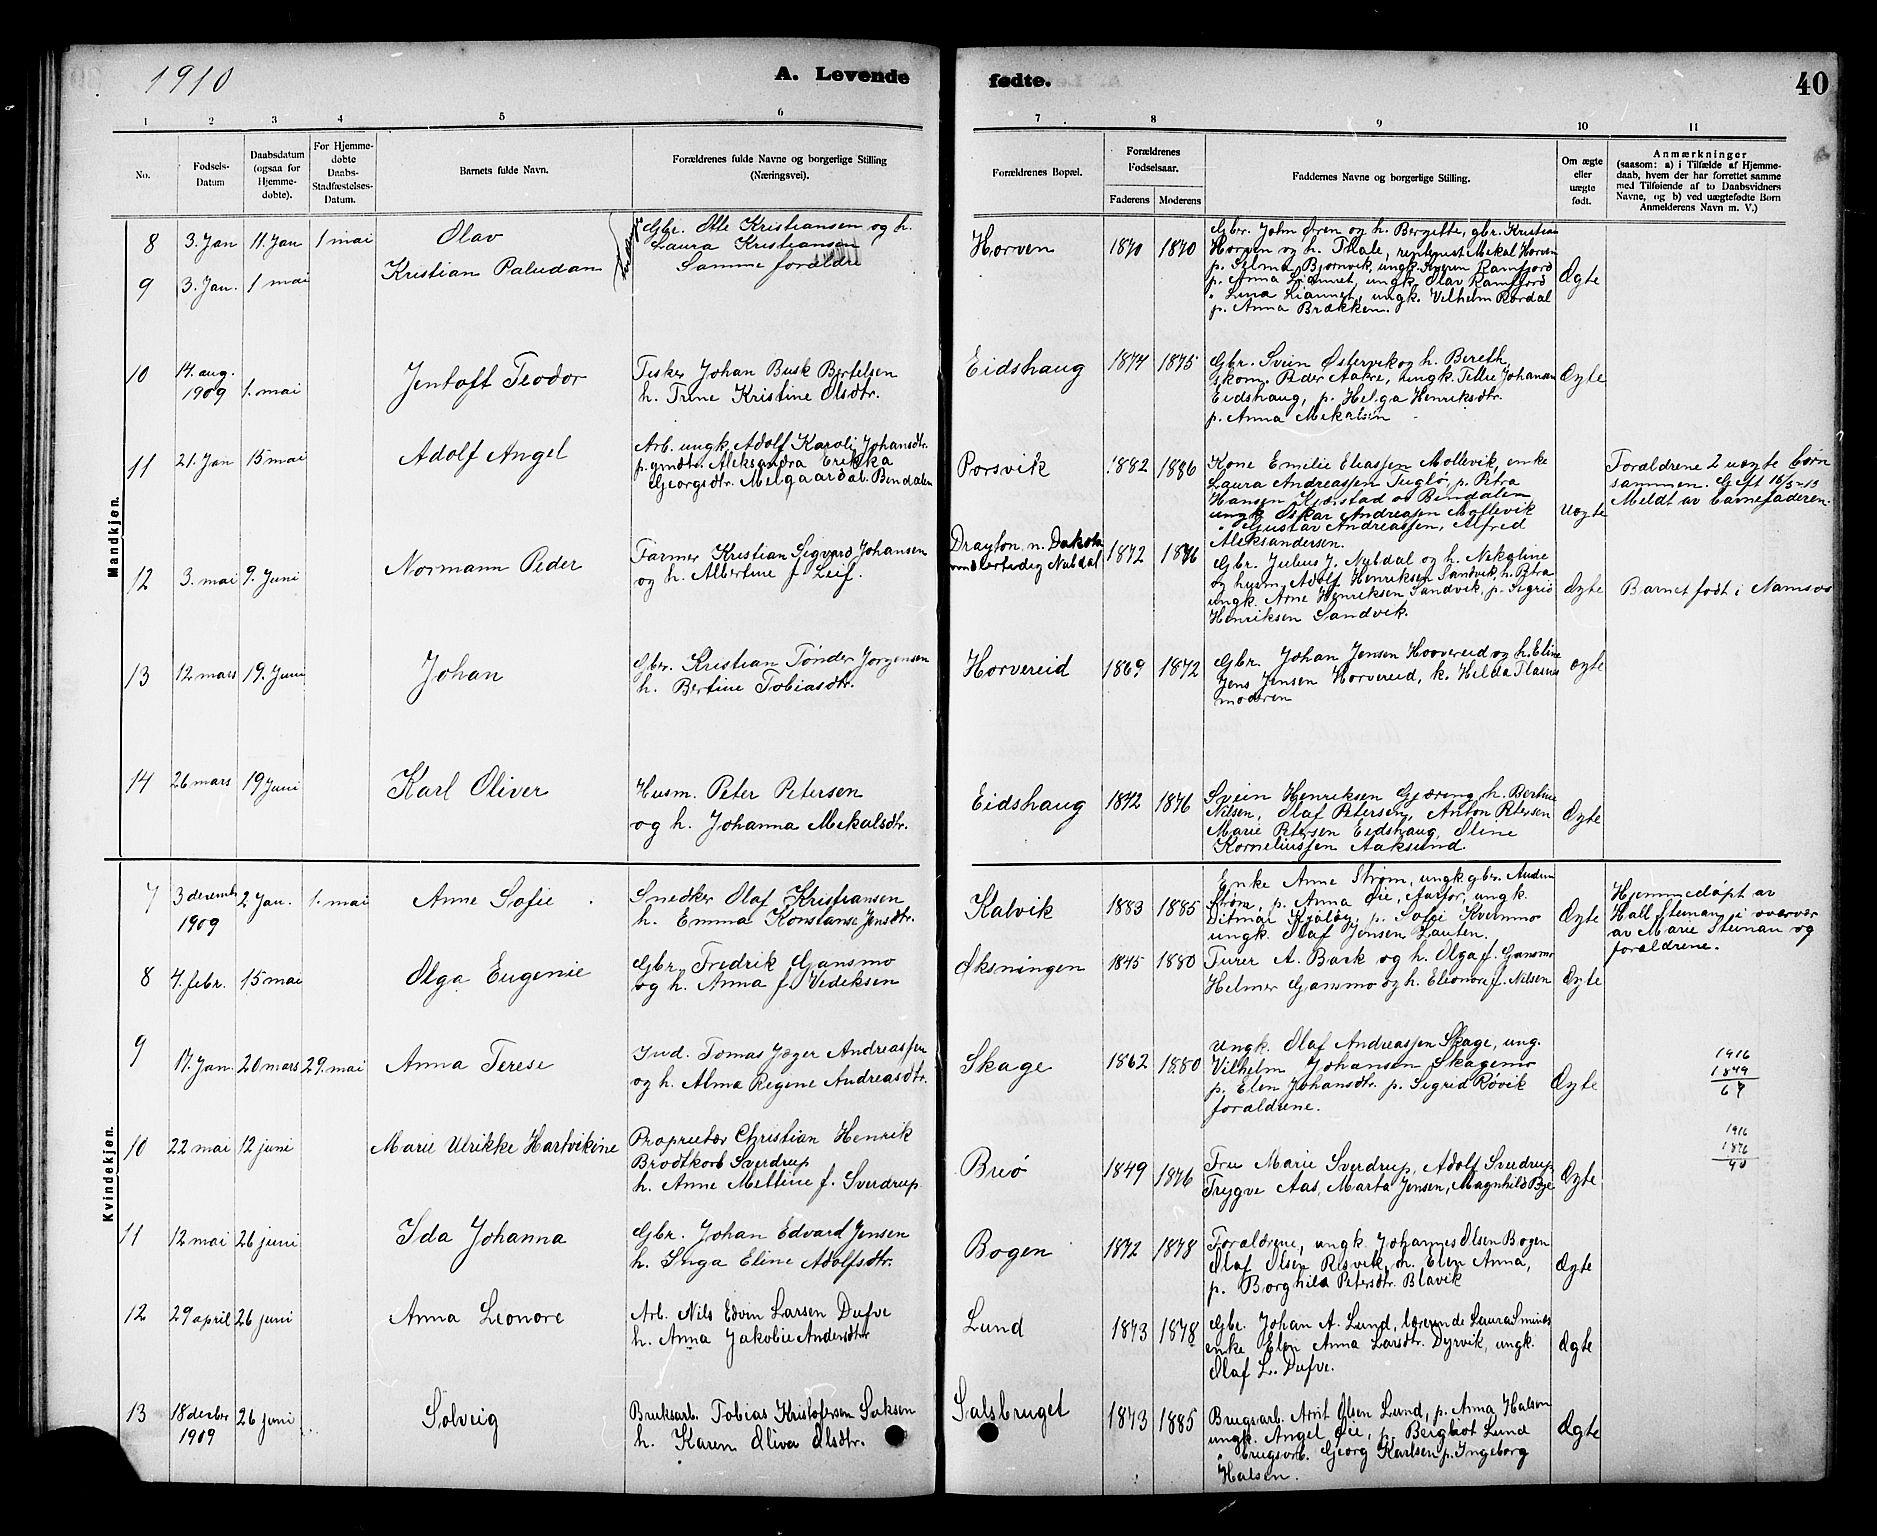 1910
A. Levende fødte.
40
1 2 3 4 5 6 7 8 9 10 11
No.
Fødsels-
Datum
Daabsdatum
(ogsaa for
Hjemme-
døbte).
For Hjemme-
døbte
Daabs-
Stadfæstelses-
Datum.
Barnets fulde Navn.
Forældrenes fulde Navne og borgerlige Stilling
(Næringsvei).
Forældrenes Bopæl.
Forældrenes
Fødselsaar.
Faderens Moderens
Faddernes Navne og borgerlige Stilling.
Om ægte
eller
uægte
født.
Anmærkninger
(saasom: a) i Tilfælde af Hjemme-
daab, hvem der har forrettet samme
med Tilføiende af to Daabsvidners
Navne, og b) ved uægtefødte Børn
Anmelderens Navn m. V.)
Mandkjøn.
8 3. Jan 11. Jan 1 mai Olav
Gbr. Otte Kristiansen og h.
Laura Kristiansen
Horven 1870 1870
Gbr. John Øren og h. Bergitte, gbr. Kristian
Horven og h. Thale, Mekal Horven
p. Selma Bjørnvik, ungk. Ramfjord
p. Anna Liannet, ungk. Olav Ramfjord
" Lina Liannet, ungk. Vilhelm Rørdal
p. Anna Brækken.
9 3. Jan. 1 mai Kristian Paludan
Samme forældre
Ægte
10 14. aug. 1909 1. mai Jentoft Teodor
Fisker Johan Busk Bertelsen
h. Trine Kristine Olsdtr.
Eidshaug 1874 1875
Gbr. Svein Østervik og h. Bereth,
Gkom. Peder Aakre, ungk. Tellie Johansen
Eidshaug, p. Helga Henriksdtr.
p. Anna Mekalsen
Ægte
11 21. Jan 15 mai Adolf Angel
Arb. ungk. Adolf Karoli Johansdtr.
p. gmdtr. Aleksandra Erikka
Georgsdtr. Melgaardal. Bendalen
Porsvik 1882 1886
Kone Emelie Eliassen Mollevik, enke
Laura Andreassen Teglø, p. Petra
Hansen Kjærstad og Bindalen
ungk Oskar Andreasen Mollevik
" Gustav Andreassen, Alfred
Aleksandersen.
Uægte
Forældrene 2 uægte børn
sammen. Gift 16/5-13
Meldt av barnefaderen.
12 3. mai 9. Juni Normann Peder
Farmer Kristian Sigvard Johansen
og h. Albertine f. Leif.
Drayton n. Dakota
midlertidig Nubdal
1872 1876
Gbr. Julius J. Nubdal og h. Nikoline
og husm. Adolf Henriksen Sandvik, h. Petra
ungk. Arne Henriksen Sandvik, p. Sigrid
Henriksen Sandvik.
Ægte
Barnet født i Namsos
13 12 mars 19. Juni Johan
Gbr. Kristian Tønder Jørgensen
h. Bertine Tobiasdtr.
Horvereid 1869 1872
Gbr. Johan Jensen Horvereid og h. Eline
Jens Jensen Horvereid, k. Hilda Flasnes
moderen
ægte
14 26 mars 19 Juni Karl Oliver
Husm. Peter Petersen
og h. Johanna Mekalsdtr.
Eidshaug 1872 1876
Svein Henriksen Gjæring, h. Bertine
Nilsen, Olaf Petersen, Anton Petersen
Marie Petersen Eidshaug, Oline
Korneliussen Aaksund.
Ægte
Kvindekjøn.
7 3 decemb 1909 2 Jan. 1. mai Anne Sofie
Snedker Olaf Kristiansen
h. Emma Konstanse Jensdtr.
Kalvik 1883 1885
Enke Anne Strøm, ungk. gbr. Andun
Strøm, p. Anna Øie, Aarfor, ungk.
Ditmar Kjøløy, p. Sofie Kvernmo
ungk. Olaf Jensen Lauten.
Ægte
Hjemmedøpt av
Hall Steinan i overvær
av Marie Steinan og
forældrene.
8 4. febr. 15 mai Olga Eugenie
Gbr. Fredrik Gansmo
og h. Anna f Vediksen
Øksningen 1845 1880
Furer A. Bark og h. Olga f. Gansmo
Helmer Gansmo og h. Eleonore f. Nilsen
Ægte
9 17. Jan. 20 mars 29. mai Anna Terese
Ind. Tomas Jæger Andreassen
og h. Alma Regine Andreasdtr.
Skage 1862 1880
ungk. Olaf Andreassen Skage, ung.
Vilhelm Johansen Skagemo
p. Elen Johansdtr. p. Sigrid Røvik
forældrene.
Ægte
1916
1849
67
10 22 mai 12 juni Marie Ulrikke Hartvikine
Proprietær Christian Henrik
Brodtkorb Sverdrup
h. Anne Mettine f. Sverdrup
Briø 1849 1876
Fru Marie Sverdrup, Adolf Sverdrup
Trygve Aas, Marta Jensen, Magnhild Bye
Ægte
1916
1876
40
11 12 mai 26 juni Ida Johanna
Gbr. Johan Edvard Jensen
h. Inga Eline Adolfsdtr.
Bogen 1872 1878
Forældrene, ungk. Johannes Olsen Bogen
Olaf Olsen Risvik, m. Elen Anna,
p. Borghild Petersdtr. Blavik
Ægte
12 29 april 26 juni Anna Leonore
Arb. Nils Edvin Larsen Dufve
h. Anna Jakobie Andersdtr
Lund 1873 1878
Gbr. Johan A. Lund, lærerinde Laura Sminæs
enke Elen Anna Larsdtr. Dyrvik, ungk.
Olaf L. Dufve.
Ægte
13 18 decbr 1909 26 juni Solveig
Bruksarb. Tobias Kristofersen Saksen
h. Karen Oliva Olsdtr.
Salsbruget 1873 1885
Brugsarb. Arnt Olsen Lund, p. Anna Halsen
ungk. Angel Øie, p. Bergliot Lund
" brugsarb. Georg Karlsen p. Ingeborg
Halsen.
Ægte